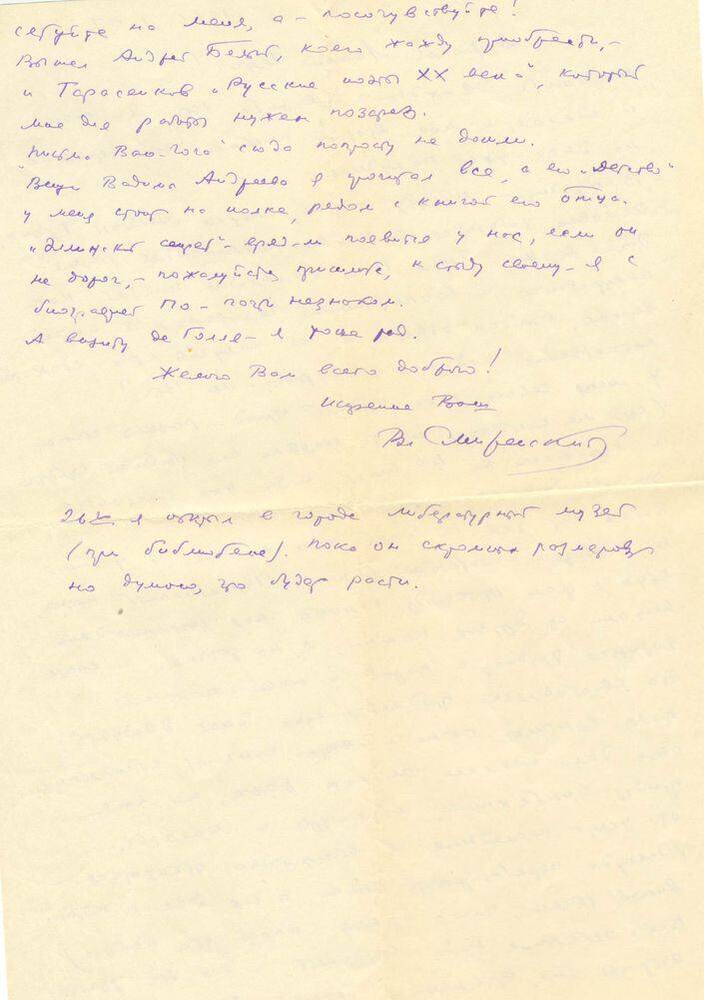 сетуйте на меня, а – посочувствуйте!
Вышел Андрей Белый, коего жажду приобрести, –
и Тарасенков „Русские поэты XX века", который
мне для работы нужен позарез.
Письма Ван-Гога сюда попросту не дошли.
Вещи Вадима Андреева я прочитал все, а его „Детство"
у меня стоит на полке, рядом с книгой его отца.
секрет" – вряд-ли появится у нас, если он
не дорог, – пожалуйста пришлите, к стыду своему – я с
биографией По – почти незнаком.
А визиту де Голля – я тоже рад.
Желаю Вам всего доброго!
Искренне Ваш
Вл Смиренский
26 я открыл в городе литературный музей
(при библиотеке). Пока он скромных размеров
но думаю, что будет расти.